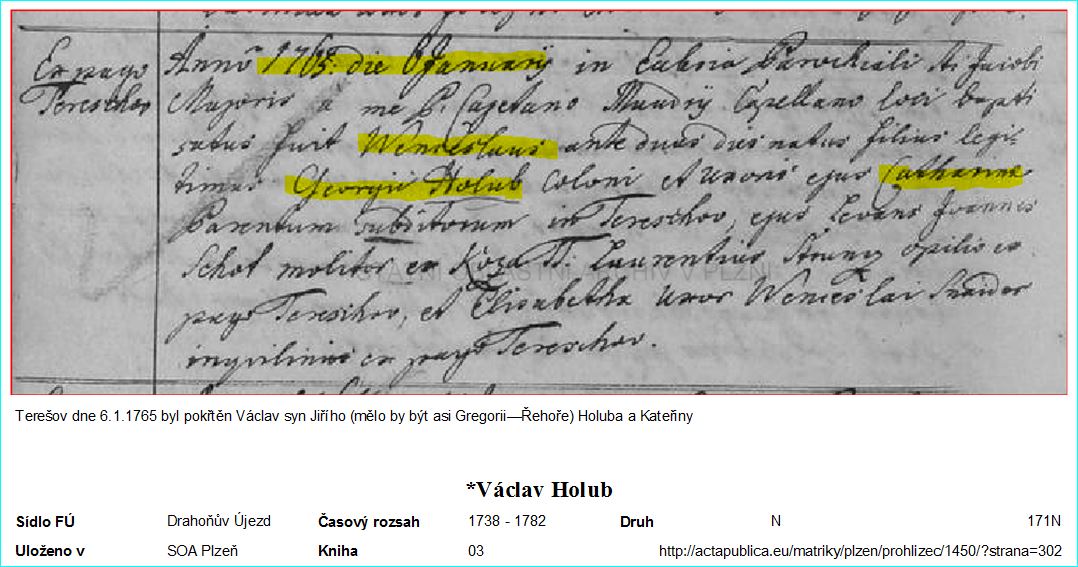 Ex pago
Tereschov
Anno 1765. die 6 Januarÿ in Eccl[esi]a Parochiali St: Jacobi
Majoris a me P. Cajetano Capellano loci bapti
satus fuit Wenceslaus ante duos dies natus filius legi-
timus Georgii Holub coloni et Uxoris ejus Catharinae
Parentum subditorum in Tereschov, ejus Levans Joannes
Schot molitor ex T: Laurentius opilio ex
pago Tereschov, et Elisabetha Uxor Wenceslai
inquilini ex pago Tereschov.
STÁTNÍ OBLASTNÍ ARCHIV V PLZNI
Terešov dne 6.1.1765 byl pokřtěn Václav syn Jiřího (mělo by být asi Gregorii—Řehoře) Holuba a Kateřiny
*Václav Holub
Sídlo FÚ Drahoňův Újezd Časový rozsah 1738 - 1782 Druh N 171N
Uloženo v SOA Plzeň Kniha 03 http://actapublica.eu/matriky/plzen/prohlizec/1450/?strana=302